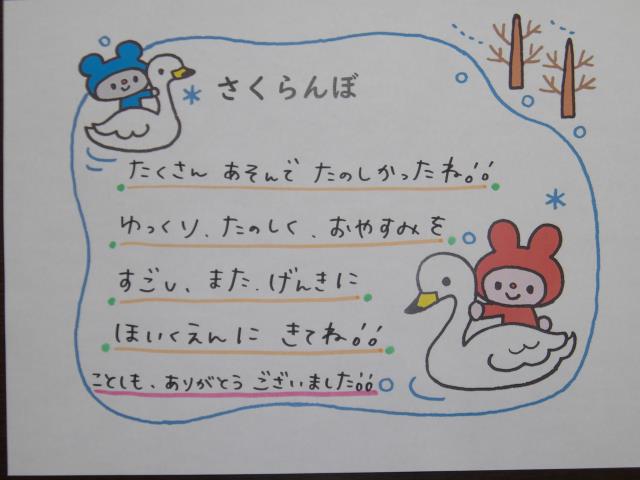 さくらんぼ
たくさん あそんで たのしかったね!!
ゆっくり、たのしく、おやすみを
すごし、また、げんきに
ほいくえんに きてね!!
ことしも、ありがとう ございました!!